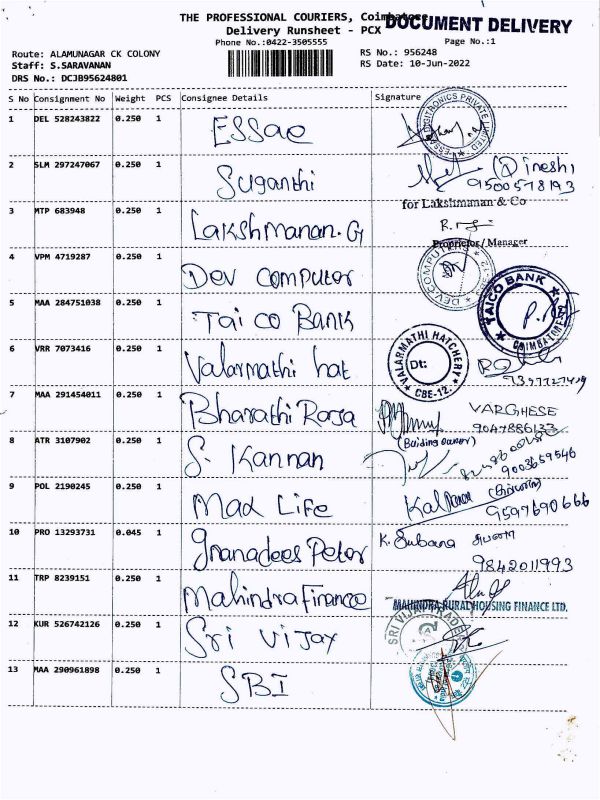 THE PROFESSIONAL COURIERS, Coimbatore
DOCUMENT DELIVERY
Delivery Runsheet - PCX
Phone No.:0422-3505555
Page No.:1
Route: ALAMUNAGAR CK COLONY
RS No.: 956248
Staff: S.SARAVANAN
RS Date: 10-Jun-2022
DRS No.: DCJB95624801
S No Consignment No Weight PCS Consignee Details Signature
1 DEL 528243822 0.250 1 ESSae
ESSAE DIGITRONICS PRIVATE LIMITED
2 SLM 297247067 0.250 1 Suganthi
(Dinesh)
9500578193
3 MTP 683948 0.250 1 Lakshmanan. G
for Lakshmanan & Co
Proprietor / Manager
4 VPM 4719287 0.250 1 Dev computer
DEV COMPUTERS
5 MAA 284751038 0.250 1 Tai co Bank
TAICO BANK
COIMBATORE
6 VRR 7073416 0.250 1 Valarmathi hat
VALARMATHI HATCHERY
Dt:
CBE-12.
7 MAA 291454011 1 Bharathi Raja
0.250
VARGHESE
9047886133
(Building owner)
8 ATR 3107902 0.250 1 S. Kannan
9003659546
9 POL 2190245 0.250 1 Max Life
9597690666
10 PRO 13293731 0.045 1 Gnanadees Peter
K. Subana சுபனா
9842011993
11 TRP 8239151 0.250 1 Mahindra Finance
MAHINDRA RURAL HOUSING FINANCE LTD.
12 KUR 526742126 0.250 1 Sri Vijay
SRI VIJAY
13 MAA 290961898 0.250 1 SBI